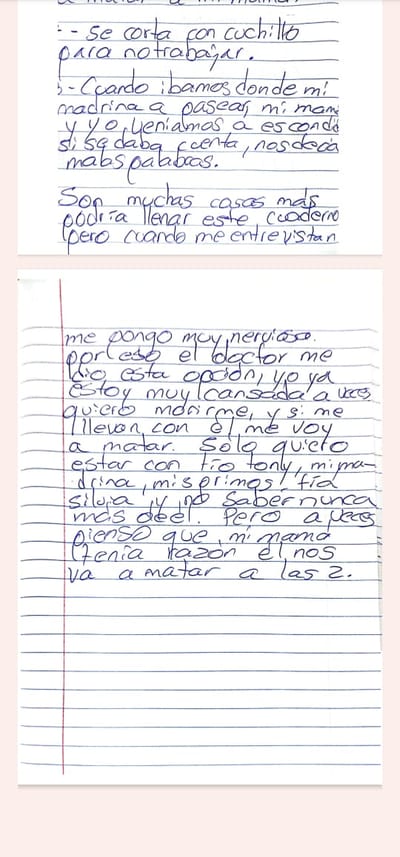 - Se corta con cuchillo
para no trabajar.
- Cuando ibamos donde mi
madrina a pasear, mi mam
y yo, veniamos a escondi
si se daba cuenta, nos decia
malas palabras.
Son muchas cosas mas
podria llenar este cuaderno
pero cuando me entrevistan
me pongo muy nervioso.
por eso el doctor me
dio esta opcion, yo ya
estoy muy cansada a veces
quiero morirme, y si me
llevan con el me voy
a matar. Solo quiero
estar con tio tony, mi ma-
drina, mis primos, tia
silvia, y no saber nunca
mas de el. Pero a veces
pienso que, mi mama
tenia razon el nos
va a matar a las 2.